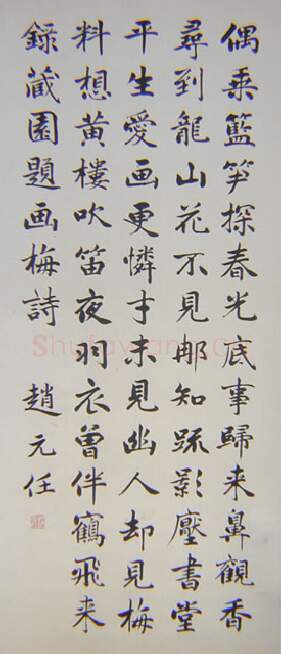 偶乘籃笋探春光底事歸来鼻觀香
尋到龍山花不見那知踈影壓書堂
平生愛画更憐才未見幽人却見梅
料想黄樓吹笛夜羽衣曾伴鶴飛来
錄藏園題画梅詩 趙元任